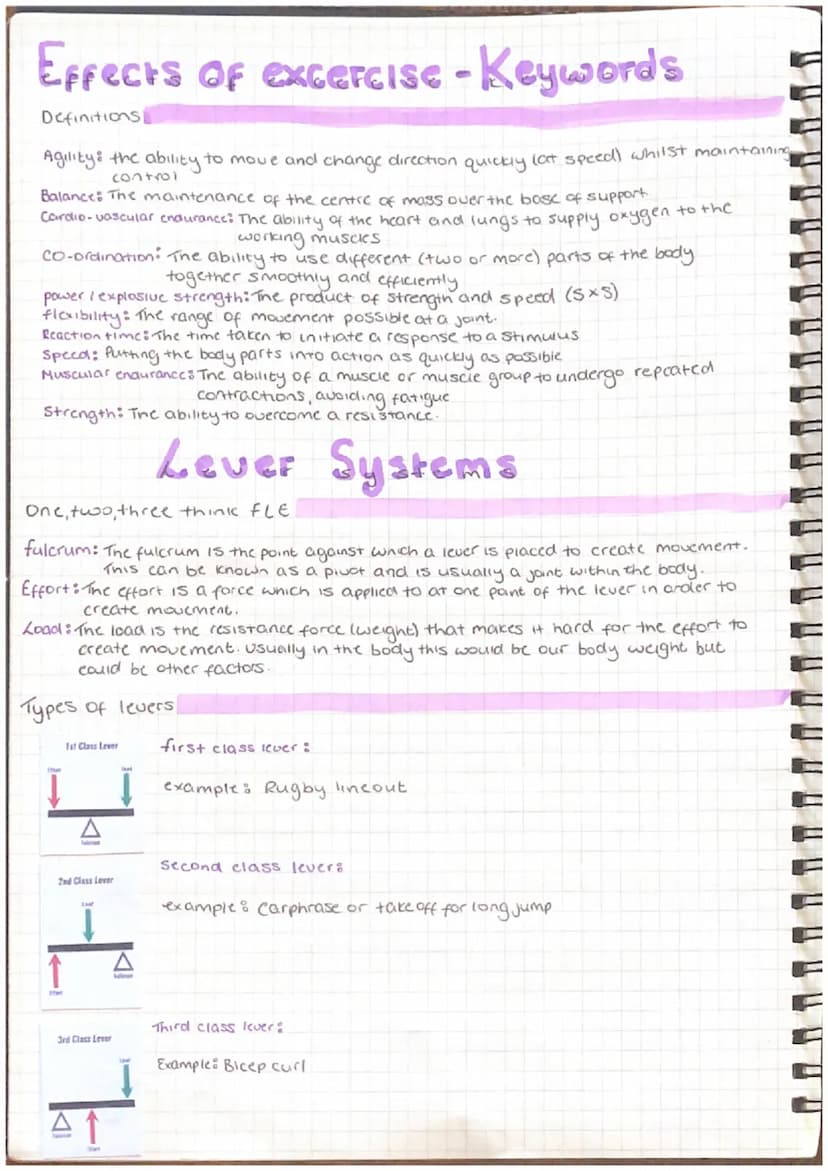 Effects of excercise - Keywords
Definitions
Agility: the ability to move and change direction quickly (at speed) whilst maintaining
control
Balance: The maintenance of the centre of mass over the base of support
Cardio-vascular endurance: The ability of the heart and lungs to supply oxygen to the
working muscles
CO-ordination: The ability to use different (two or more) parts of the body
together smoothly and efficiently
power / explosive strength: The product of strength and speed (S×S)
flexibility: The range of movement possible at a joint.
Reaction time: The time taken to initiate a response to a stimulus
Speed: Putting the body parts into action as quickly as possible
Muscular endurance: The ability of a muscle or muscle group to undergo repeated
contractions, avoiding fatigue
Strength: The ability to overcome a resistance.
Lever Systems
One, two, three think FLE
fulcrum: The fulcrum is the point against which a lever is placed to create movement.
This can be known as a pivot and is usually a joint within the body.
Effort: The effort is a force which is applied to at one point of the lever in order to
create movement.
Load: The load is the resistance force (weight) that makes it hard for the effort to
create movement. Usually in the body this would be our body weight but
could be other factors.
Types of levers
1st Class Lever
first class lever:
Effort
Load
example: Rugby lineout
Fulcrum
Second class lever:
2nd Class Lever
Load
example: Carphrase or take off for long jump
Fulcrum
Effort
Third class lever:
3rd Class Lever
Load
Example: Bicep curl
Fulcrum
Effort